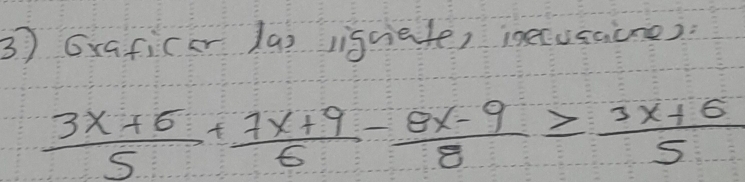 3) Graficar las siguientes inecuaciones:
3x+6/5 + 7x+9/6 - 8x-9/8 ≥ 3x+6/5